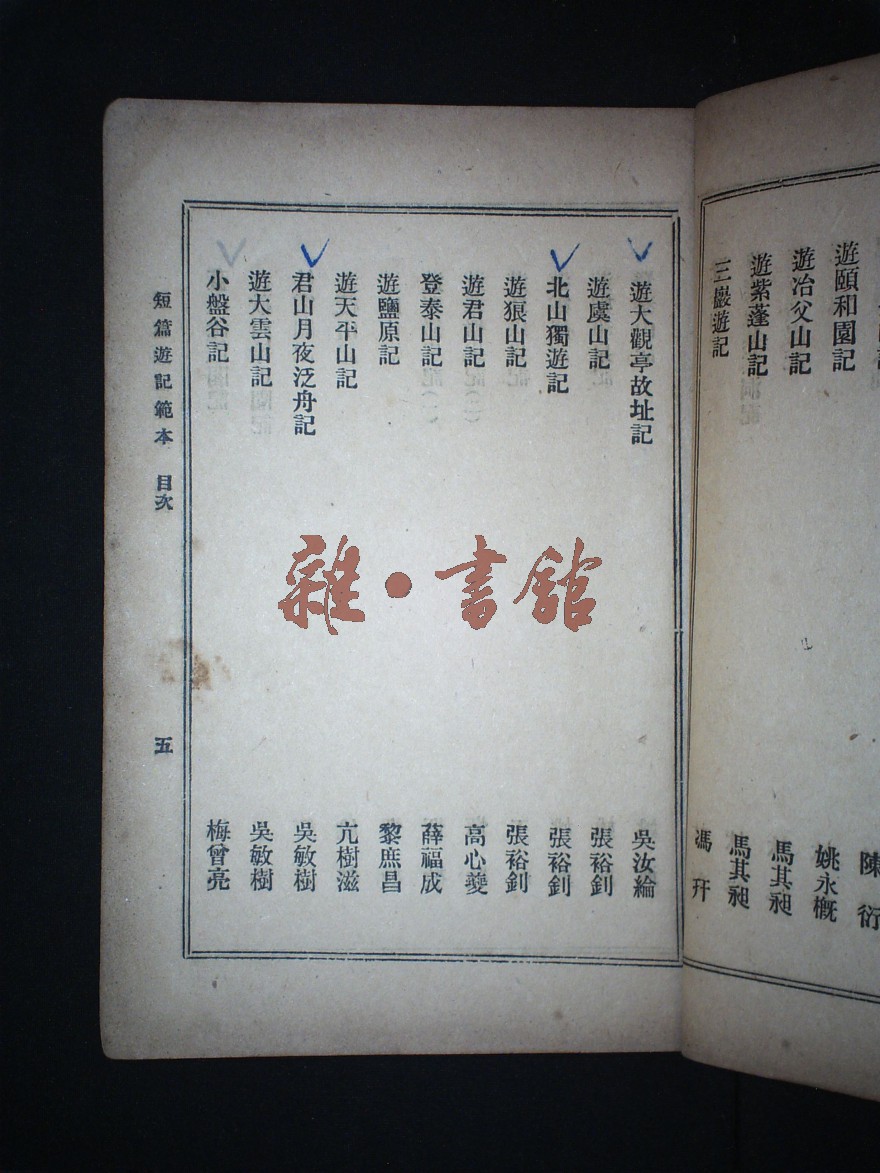 遊頤和園記 陳衍
遊冶父山記 姚永概
遊紫蓬山記 馬其昶
三巖遊記 馬其昶
馮幵
遊大觀亭故址記 吳汝綸
遊虞山記 張裕釗
北山獨遊記 張裕釗
遊狼山記 張裕釗
遊君山記 高心夔
登泰山記 薛福成
遊鹽原記 黎庶昌
遊天平山記 亢樹滋
君山月夜泛舟記 吳敏樹
遊大雲山記 吳敏樹
小盤谷記 梅曾亮
短篇遊記範本 目次
五
雜·書館